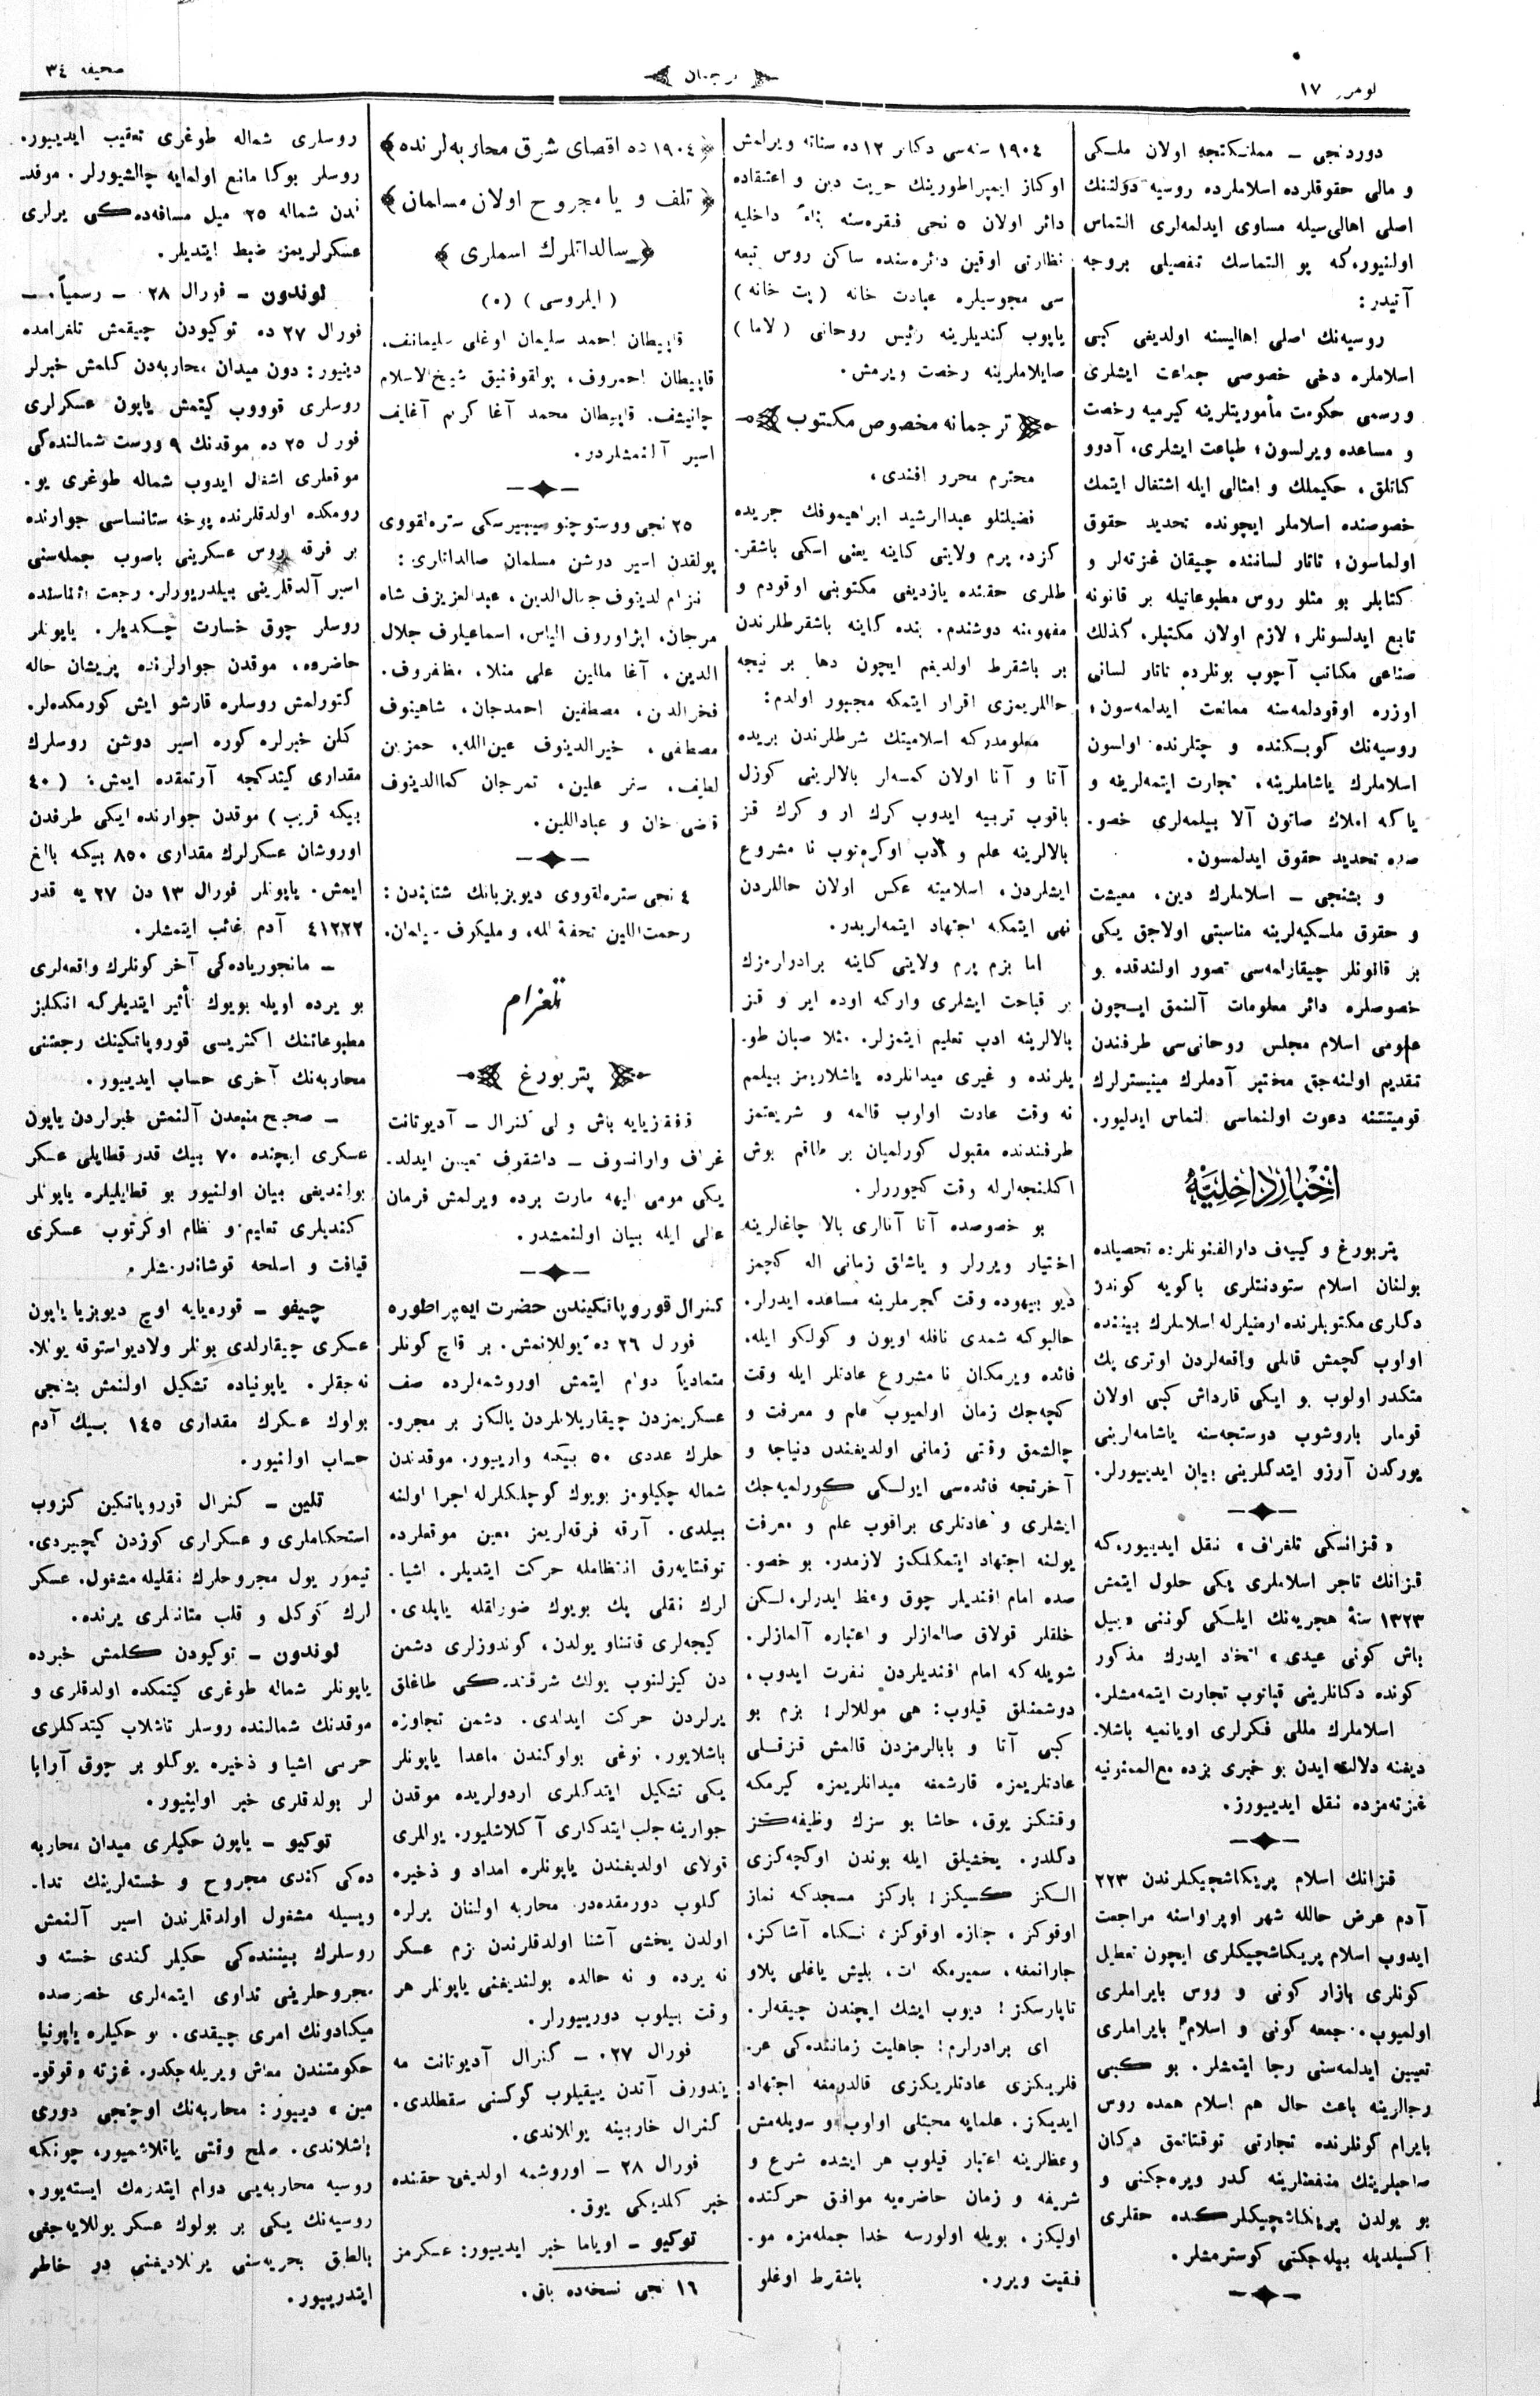 نومرو ١٧
ترجمان
صحيفه ٣٤
دوردنجى – مملكتجه اولان ملكى
و مالى حقوقلرده اسلاملرده روسيه دولتنك
اصلى اهالى‌سيله مساوى ايدلمه‌لرى التماس
اولنيور، كه بو التماسك تفصيلى بروجه
آتيدر:
روسيه‌نك اصلى اهاليسنه اولديغى كبى
اسلاملره دخى خصوصى جماعت ايشلرى
و رسمى حكومت مأموريتلرينه كيرميه رخصت
و مساعده ويرلسون؛ طباعت ايشلرى، آدوو
كاتلق، حكيملك و امثالى ايله اشتغال ايتمك
خصوصنده اسلاملر ايچونده تحديد حقوق
اولماسون؛ تاتار لساننده چيقان غزته‌لر و
كتابلر بو مثللو روس مطبوعاتيله بر قانونه
تابع ايدلسونلر؛ لازم اولان مكتبلر، كذلك
صناعى مكاتب آچوب بونلرده تاتار لسانى
اوزره اوقودلمه‌سنه ممانعت ايدلمه‌سون؛
روسيه‌نك كويكنده و چتلرنده اولسون
اسلاملرك ياشاملرينه، تجارت ايتمه‌لرينه و
ياكه املاك صاتون آلا بيلمه‌لرى خصو-
صده تحديد حقوق ايدلمسون.
و بشنجى – اسلاملرك دين، معيشت
و حقوق ملكيه‌لرينه مناسبتى اولاجق يكى
بر قانونلر چيقارلمه‌سى تصور اولندقده بو
خصوصلره دائر معلومات آلنمق ايچون
عمومى اسلام مجلس روحانى‌سى طرفندن
تقديم اولنه‌جق مختبر آدملرك مينيسترلرك
قوميتتنه دعوت اولنماسى التماس ايدليور.
اخبار داخليه
پتربورغ و كييف دارالفنونلرده تحصيلده
بولنان اسلام ستودنتلرى باكويه كوندر
دكلرى مكتوبلرنده ارمنيلرله اسلاملرك بيننده
اولوب كچمش قانلى واقعه‌لردن اوترى پك
متكدر اولوب بو ايكى قارداش كبى اولان
قوملر باروشوب دوستجه‌سنه ياشامه‌لرينى
يوركدن آرزو ايتدكلرينى بيان ايدييورلر.
«قزانسكى تلغراف» نقل ايدييور، كه
قزانك تاجر اسلاملرى يكى حلول ايتمش
١٣٢٣ سنۀ هجريه‌نك ايلكى كوننى «ييل
باش كونى عيدى» اتخاذ ايدرك مذكور
كونده دكانلرينى قپاتوب تجارت ايتمه‌مشلر.
اسلاملرك مللى فكرلرى اويانميه باشلا-
ديغنه دلالت ايدن بو خبرى بزده مع‌الممنونيه
غزته‌مزده نقل ايدييورز.
قزانك اسلام پريكاشچيكلرندن ٢٢٣
آدم عرض حالله شهر اوپراواسنه مراجعت
ايدوب اسلام پريكاشچيكلرى ايچون تعطيل
كونلرى بازار كونى و روس بايراملرى
اولميوب، جمعه كونى و اسلام بايراملرى
تعيين ايدلمه‌سنى رجا ايتمشلر. بو كبى
رجالرينه باعث حال هم اسلام همده روس
بايرام كونلرنده تجارتى توقتاتمق دكان
صاحبلرينك منفعتلرينه كدر ويره‌جكنى و
بو يولدن پريكاشچيكلركده حقلرى
اكسيلديله بيله‌جكنى كوسترمشلر.
١٩٠٤ سنه‌سى دكابر ١٢ ده سناته ويرلمش
اوكاز ايمپراطورينك حريت دين و اعتقاده
دائر اولان ٥ نجى فقره‌سنه بناءً داخليه
نظارتى اوقين دائره‌سنده ساكن روس تبعه
سى مجوسيلره عبادت خانه (پت خانه)
ياپوب كنديلرينه رئيس روحانى (لاما)
صايلاملرينه رخصت ويرمش.
ترجمانه مخصوص مكتوب
محترم محرر افندى،
فضيلتلو عبدالرشيد ابراهيموفك جريده
كزده پرم ولايتى كاينه يعنى اسكى باشقر-
طلرى حقنده يازديغى مكتوبنى اوقودم و
مفهومنه دوشندم. بنده كاينه باشقرطلرندن
بر باشقرط اولديغم ايچون دها بر نيچه
حاللريمزى اقرار ايتمكه مجبور اولدم:
معلومدركه اسلاميتك شرطلرندن بريده
آتا و آنا اولان كمسه‌لر بالالرينى كوزل
باقوب تربيه ايدوب كرك ار و كرك قز
بالالرينه علم و ادب اوكره‌نوب نا مشروع
ايشلردن، اسلاميته عكس اولان حاللردن
نهى ايتمكه اجتهاد ايتمه‌لريدر.
اما بزم پرم ولايتى كاينه برادرلرمزك
بر قباحت ايشلرى واركه اوده اير و قز
بالالرينه ادب تعليم ايتمزلر. مثلا صبان طو-
يلرنده و غيرى ميدانلرده ياشلاريمز بيلمم
نه وقت عادت اولوب قالمه و شريعتمز
طرفندنده مقبول كورلميان بر طاقم بوش
اكلنجه‌لرله وقت كچوررلر.
بو خصوصده آنا آنالرى بالا چاغالرينه
اختيار ويررلر و ياشلق زمانى اله كچمز
ديو بيهوده وقت كچرملرينه مساعده ايدرلر.
حالبوكه شمدى نافله اويون و كولكو ايله،
فائده ويرمكان نا مشروع عادتلر ايله وقت
كچه‌جك زمان اولميوب علم و معرفت و
چالشمق وقتى زمانى اولديغندن دنياجه و
آخرتجه فائده‌سى ايولكى كورلميه‌جك
ايشلرى و عادتلرى براقوب علم و معرفت
يولنه اجتهاد ايتمكلكمز لازمدر. بو خصو-
صده امام افنديلر چوق وعظ ايدرلر، لكن
خلقلر قولاق صالمازلر و اعتباره آلمازلر.
شويله كه امام افنديلردن نفرت ايدوب،
دوشمنلق قيلوب: هى موللالر! بزم بو
كبى آتا و بابالرمزدن قالمش قزقلى
عادتلريمزه قارشمغه ميدانلريمزه كيرمكه
وقتكز يوق، حاشا بو سزك وظيفه‌كز
دكلدر. يخشيلق ايله بوندن اوكچه‌كزى
الكز كسيكز! باركز مسجدكه نماز
اوقوكز، جنازه اوقوكز، نكاه آشاكز،
جارانمغه، سميرمكه ات، بليش ياغلى پلاو
تاپارسكز! ديوب ايشك ايچندن چيقه‌لر.
اى برادرلرم! جاهليت زماننده‌كى عر-
فلريكزى عادتلريكزى قالدرمغه اجتهاد
ايديكز. علمايه محبتلى اولوب و سويله‌مش
وعظلرينه اعتبار قيلوب هر ايشده شرع و
شريفه و زمان حاضره‌يه موافق حركتده
اوليكز. بويله اولورسه خدا جمله‌مزه مو-
فقيت ويرر. باشقرط اوغلو
١٩٠٤ ده اقصاى شرق محاربه‌لرنده
تلف و يا مجروح اولان مسلمان
سالداتلرك اسملرى
(ايلروسى) (٥)
قاپيطان احمد سليمان اوغلى سليمانف،
قاپيطان احمروف، پولقوفنيق شيخ‌الاسلام
چانيشف. قاپيطان محمد آغا كريم آغايف
اسير آلنمشلردر.
٢٥ نجى ووستوچنو سيبيرسكى ستره‌لقووى
پولقدن اسير دوشن مسلمان صالداتلرى:
نزام لدينوف جمال‌الدين، عبدالعزيزف شاه
مرجان، ابزاوروف الياس، اسماعيلرف جلال
الدين، آغا مللين على منلا، مظفروف،
فخرالدن، مصطفين احمدجان، شاهينوف
مصطفى، خيرالدينوف عين‌الله، حمزين
لطيف، سفر علين، تمرجان كماالدينوف
قضى خان و عباداللين.
٤ نجى ستره‌لقووى ديويزيانك شتابندن:
رحمت‌اللين تحفة اله، و مليكرف سليمان.
تلغرام
پتربورغ
قفقزيايه باش ولى كنرال – آديوتانت
غراف وارانسوف – داشقوف تعيين ايدلد-
يكى مومى اليهه مارت برده ويرلمش فرمان
عالى ايله بيان اولنمشدر.
كنرال قوروپاتكيندن حضرت ايمپراطوره
فورال ٢٦ ده يوللانمش. بر قاچ كونلر
متمادياً دوام ايتمش اوروشمه‌لرده صف
عسكريمزدن چيقاريلانلردن يالكز بر مجرو-
حلرك عددى ٥٠ بيكه وارييور. موقدندن
شماله چكيلومز بويوك كوچلكلرله اجرا اولنه
بيلدى. آرقه فرقه‌لريمز معين موقعلرده
توقتايه‌رق انتظامله حركت ايتديلر. اشيا-
لرك نقلى پك بويوك ضورلقله ياپلدى.
كيجه‌لرى قاتناو يولدن، كوندوزلرى دشمن
دن كيزلنوب يولك شرقنده‌كى طاغلق
يرلردن حركت ايدلدى. دشمن تجاوزه
باشلايور. نوغى بولوكندن ماعدا ياپونلر
يكى تشكيل ايتدكلرى اردولريده موقدن
جوارينه جلب ايتدكلرى آكلاشليور. يوللرى
قولاى اولديغندن ياپونلره امداد و ذخيره
كلوب دورمقده‌در. محاربه اولنان يرلره
اولدن يخشى آشنا اولدقلرندن بزم عسكر
نه يرده و نه حالده بولنديغنى ياپونلر هر
وقت بيلوب دورييورلر.
فورال ٢٧ – كنرال آديوتانت مه
يندورف آتدن ييقيلوب كوكسنى سقطلدى.
كنرال خاربينه يوللاندى.
فورال ٢٨ – اوروشمه اولديغى حقنده
خبر كلمديكى يوق.
توكيو – اوياما خبر ايدييور: عسكرمز
١٦ نجى نسخه‌ده باق.
روسلرى شماله طوغرى تعقيب ايدييور.
روسلر بوكا مانع اولمايه چالشيورلر. موقد-
ندن شماله ٢٥ ميل مسافه‌ده‌كى يرلرى
عسكرلريمز ضبط ايتديلر.
لوندون – فورال ٢٨ – رسمياً. –
فورال ٢٧ ده توكيودن چيقمش تلغرامده
دينيور: دون ميدان محاربه‌دن كلمش خبرلر
روسلرى قوووب كيتمش ياپون عسكرلرى
فورال ٢٥ ده موقدنك ٩ ورست شمالنده‌كى
موقعلرى اشغال ايدوب شماله طوغرى يو-
رومكده اولدقلرنده پوخه ستانساسى جوارنده
بر فرقه روس عسكرينى باصوب جمله‌سنى
اسير آلدقلرينى بيلدريورلر. رجعت اثناسنده
روسلر چوق خسارت چكديلر. ياپونلر
حاضره، موقدن جوارلرنده پريشان حاله
كتورلمش روسلره قارشو ايش كورمكده‌لر.
كلن خبرلره كوره اسير دوشن روسلرك
مقدارى كيتدكجه آرتمقده ايمش: (٤٠
بيكه قريب) موقدن جوارنده ايكى طرفدن
اوروشان عسكرلرك مقدارى ٨٥٠ بيكه بالغ
ايمش. ياپونلر فورال ١٣ دن ٢٧ يه قدر
٤١٢٢٢ آدم غائب ايتمشلر.
– مانجورياده‌كى آخر كونلرك واقعه‌لرى
بو يرده اويله بويوك تأثير ايتديلركه انكليز
مطبوعاتنك اكثريسى قوروپاتكينك رجعتنى
محاربه‌نك آخرى حساب ايدييور.
– صحيح منبعدن آلنمش خبرلردن ياپون
عسكرى ايچنده ٧٠ بيك قدر قطايلى عسكر
بولنديغى بيان اولنيور بو قطايليلره ياپونلر
كنديلرى تعليم و نظام اوكرتوب عسكرى
قيافت و اسلحه قوشاندرمشلر.
چيفو – قوره‌يايه اوچ ديويزيا ياپون
عسكرى چيقارلدى بونلر ولاديواستوقه يوللا-
نه‌جقلر. ياپونياده تشكيل اولنمش بشنجى
بولوك عسكرك مقدارى ١٤٥ بيك آدم
حساب اولنيور.
تلين – كنرال قوروپاتكين كزوب
استحكاملرى و عسكرلرى كوزدن كچيردى.
تيمور يول مجروحلرك نقليله مشغول. عسكر
لرك توكل و قلب متانتلرى يرنده.
لوندون – توكيودن كلمش خبرده
ياپونلر شماله طوغرى كيتمكده اولدقلرى و
موقدنك شمالنده روسلر تاشلاب كيتدكلرى
حربى اشيا و ذخيره يوكلو بر چوق آرابا
لر بولدقلرى خبر اولينيور.
توكيو – ياپون حكيلرى ميدان محاربه
ده‌كى كندى مجروح و خسته‌لرينك تدا-
ويسيله مشغول اولدقلرندن اسير آلنمش
روسلرك بيننده‌كى حكيلر كندى خسته و
مجروحلرينى تداوى ايتمه‌لرى خصوصده
ميكادونك امرى چيقدى. بو حكيلره ياپونيا
حكومتندن معاش ويريله‌جكدر. غزته «قوقو-
مين» دييور: محاربه‌نك اوچنجى دورى
باشلاندى. صلح وقتى ياقلاشميور، چونكه
روسيه محاربه‌يى دوام ايتدرمك ايسته‌يور.
روسيه‌نك يكى بر بولوك عسكر يوللايه‌جغى
بالطق بحريه‌سنى يرنلاديغنى در خاطر
ايتدرييور.